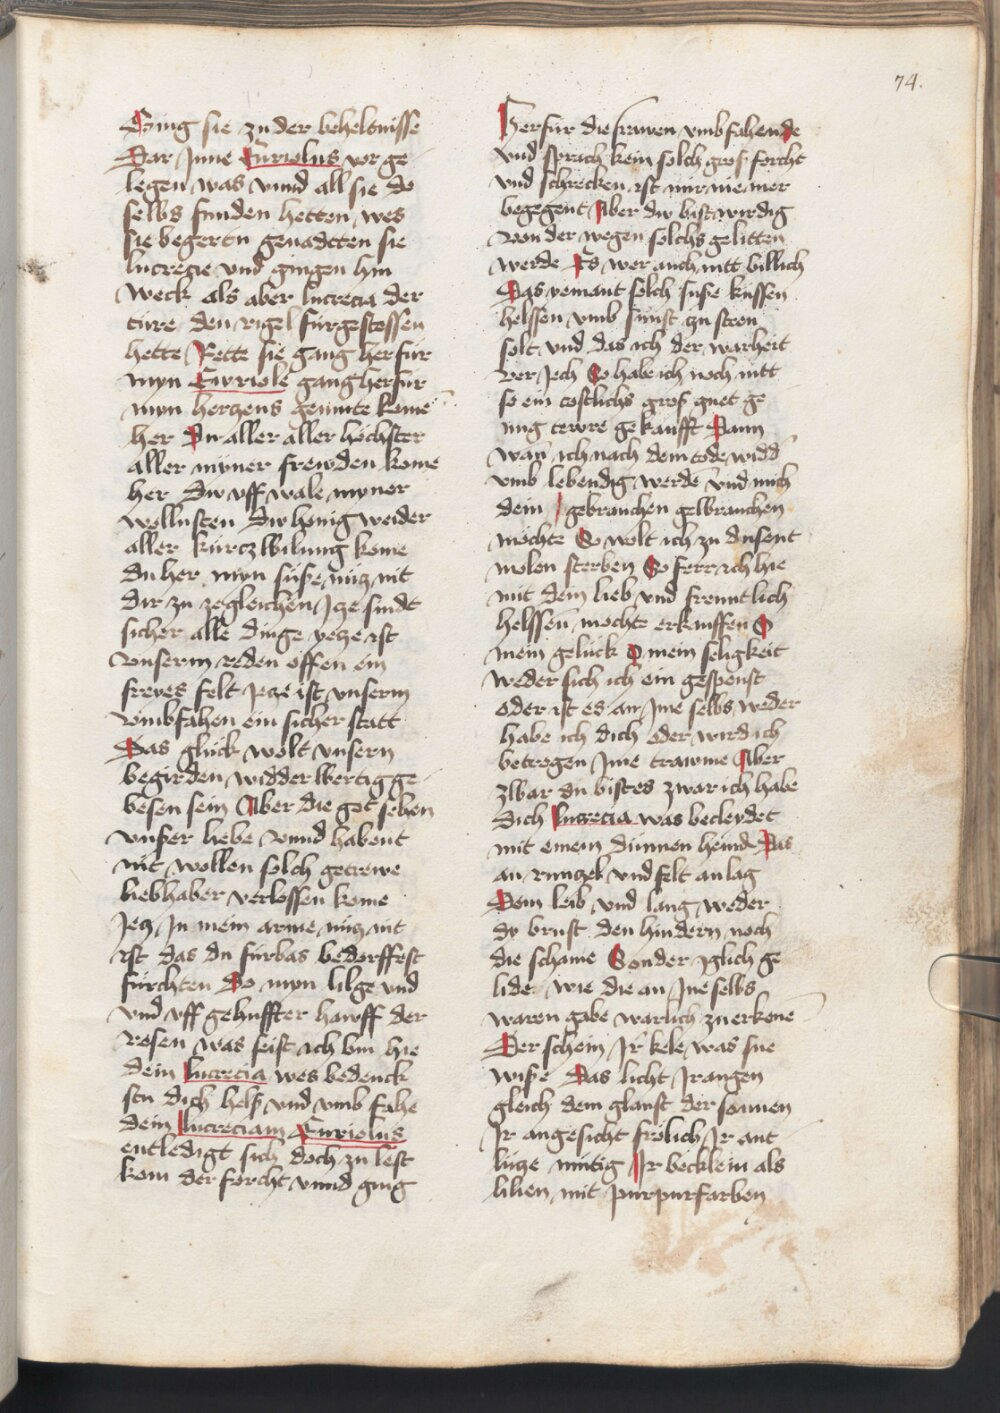 74.
Ging sie zu der beheltnisse
Dar Jnne Euriolus vor ge
legen was vnnd all sie do
selbs funden hetten wes
sie begertn genadeten sie
lucrecie vnd gingen hin
weck als aber lucrecia der
ture den rigel fürgestossen
hette Rette sie gang herfür
myn Euriole gang herfür
myn hertzens gemüte kome
her Du aller aller höchster
aller myner frewden kome
her Du vff wale myner
wollusten Du honig weider
aller kürczwilung kome
du her myn süße nütz nit
dir zu zegleichen Jtze sindt
sicher alle dinge yetze ist
vnserm reden offen ein
freyes felt Jetze ist vnserm
vmbfahen ein sicher statt
Das glück wolt vnsern
begirden widderwertig ge
besen sein Aber die got sehen
vnßer liebe vnnd habent
nit wollen solch getrewe
liebhaber verlossen kome
Jetz Jn mein arme nütz nit
ist das du fürbas bedorffest
fürchten Do myn lilge vnd
vnd vff gehuffter hawff der
rosen was seist ich bin hie
dein lucrecia wes bedenck
stu dich helß vnd vmb fahe
dein lucreciam Euriolus
entledigt sich doch zu lest
kom der forcht vnnd ging
Herfür die frawen vmbfahende
vnd sprach kein solch gros forcht
vnd schrecken ist mir niemer
begegent Aber du bist wirdig
von der wegen solchs gelitten
werde Es wer auch nitt billich
Das yemant solch suße küssen
helssen vmb sünst zu steen
solt vnd das ich der warheit
ver Jech So habe ich noch nitt
so ein costlichs gros guet ge
nüg tewre gekaufft Dann
wan ich nach dem tode widd
vmb lebendig werde vnd mich
dein gebrauchen gelbrauchen
möchte So wolt ich zu dusent
molen sterben So ferr ich hie
mit dem lieb vnd frentlich
helssen mocht erkauffen O
mein gelück O mein seligkeit
weder sich ich ein gespenst
oder ist es an Jme selbs weder
habe ich dich oder wird ich
betrogen Jme trawme Aber
zwar du bist es zwar ich habe
dich lucrecia was becleydet
mit einem dünnen hemd Das
an runtzel vnd felt an lag
Dem leib vnd lang weder
dy brust den hindern noch
die schame Sonder iglich ge
lide wie die an Jne selbs
waren gabe warlich zu erkene
Der schein Jr kele was sne
wiße Das licht Jr augen
gleich dem glanst der sonnen
Jr angesicht frölich Jr ant
lütze mütig Jr becklein als
lilien mit purpurfarben